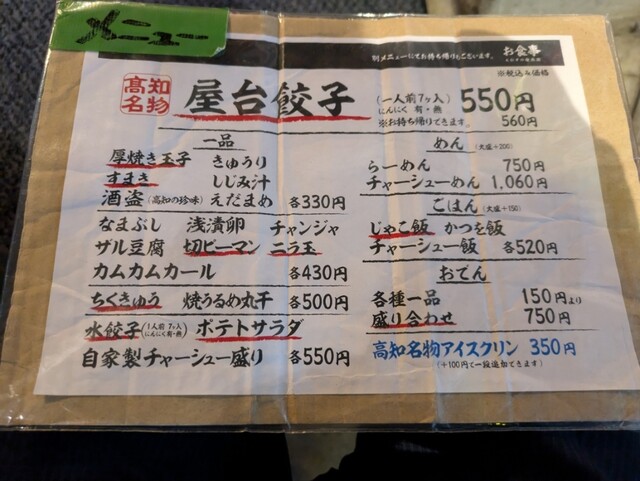 メニュー
別メニューにてお持ち帰りもございます。
お食事
※税込み価格
高知名物
屋台餃子
(一人前7ヶ入)
にんにく 有・無
550円
※お持ち帰りできます。 560円
一品
厚焼き玉子 きゅうり
すまき しじみ汁
酒盗(高知の珍味) えだまめ 各330円
なまぶし 浅漬卵 チャンジャ
ザル豆腐 切りピーマン ニラ玉
カムカムカール 各430円
ちくきゅう 焼うるめ丸干 各500円
水餃子(1人前 7ヶ入 にんにく有・無) ポテトサラダ
自家製チャーシュー盛り 各550円
めん (大盛+200)
らーめん 750円
チャーシューめん 1,060円
ごはん (大盛+150)
じゃこ飯 かつを飯
チャーシュー飯 各520円
おでん
各種一品 150円より
盛り合わせ 750円
高知名物アイスクリン 350円
(+100円で一段追加できます)